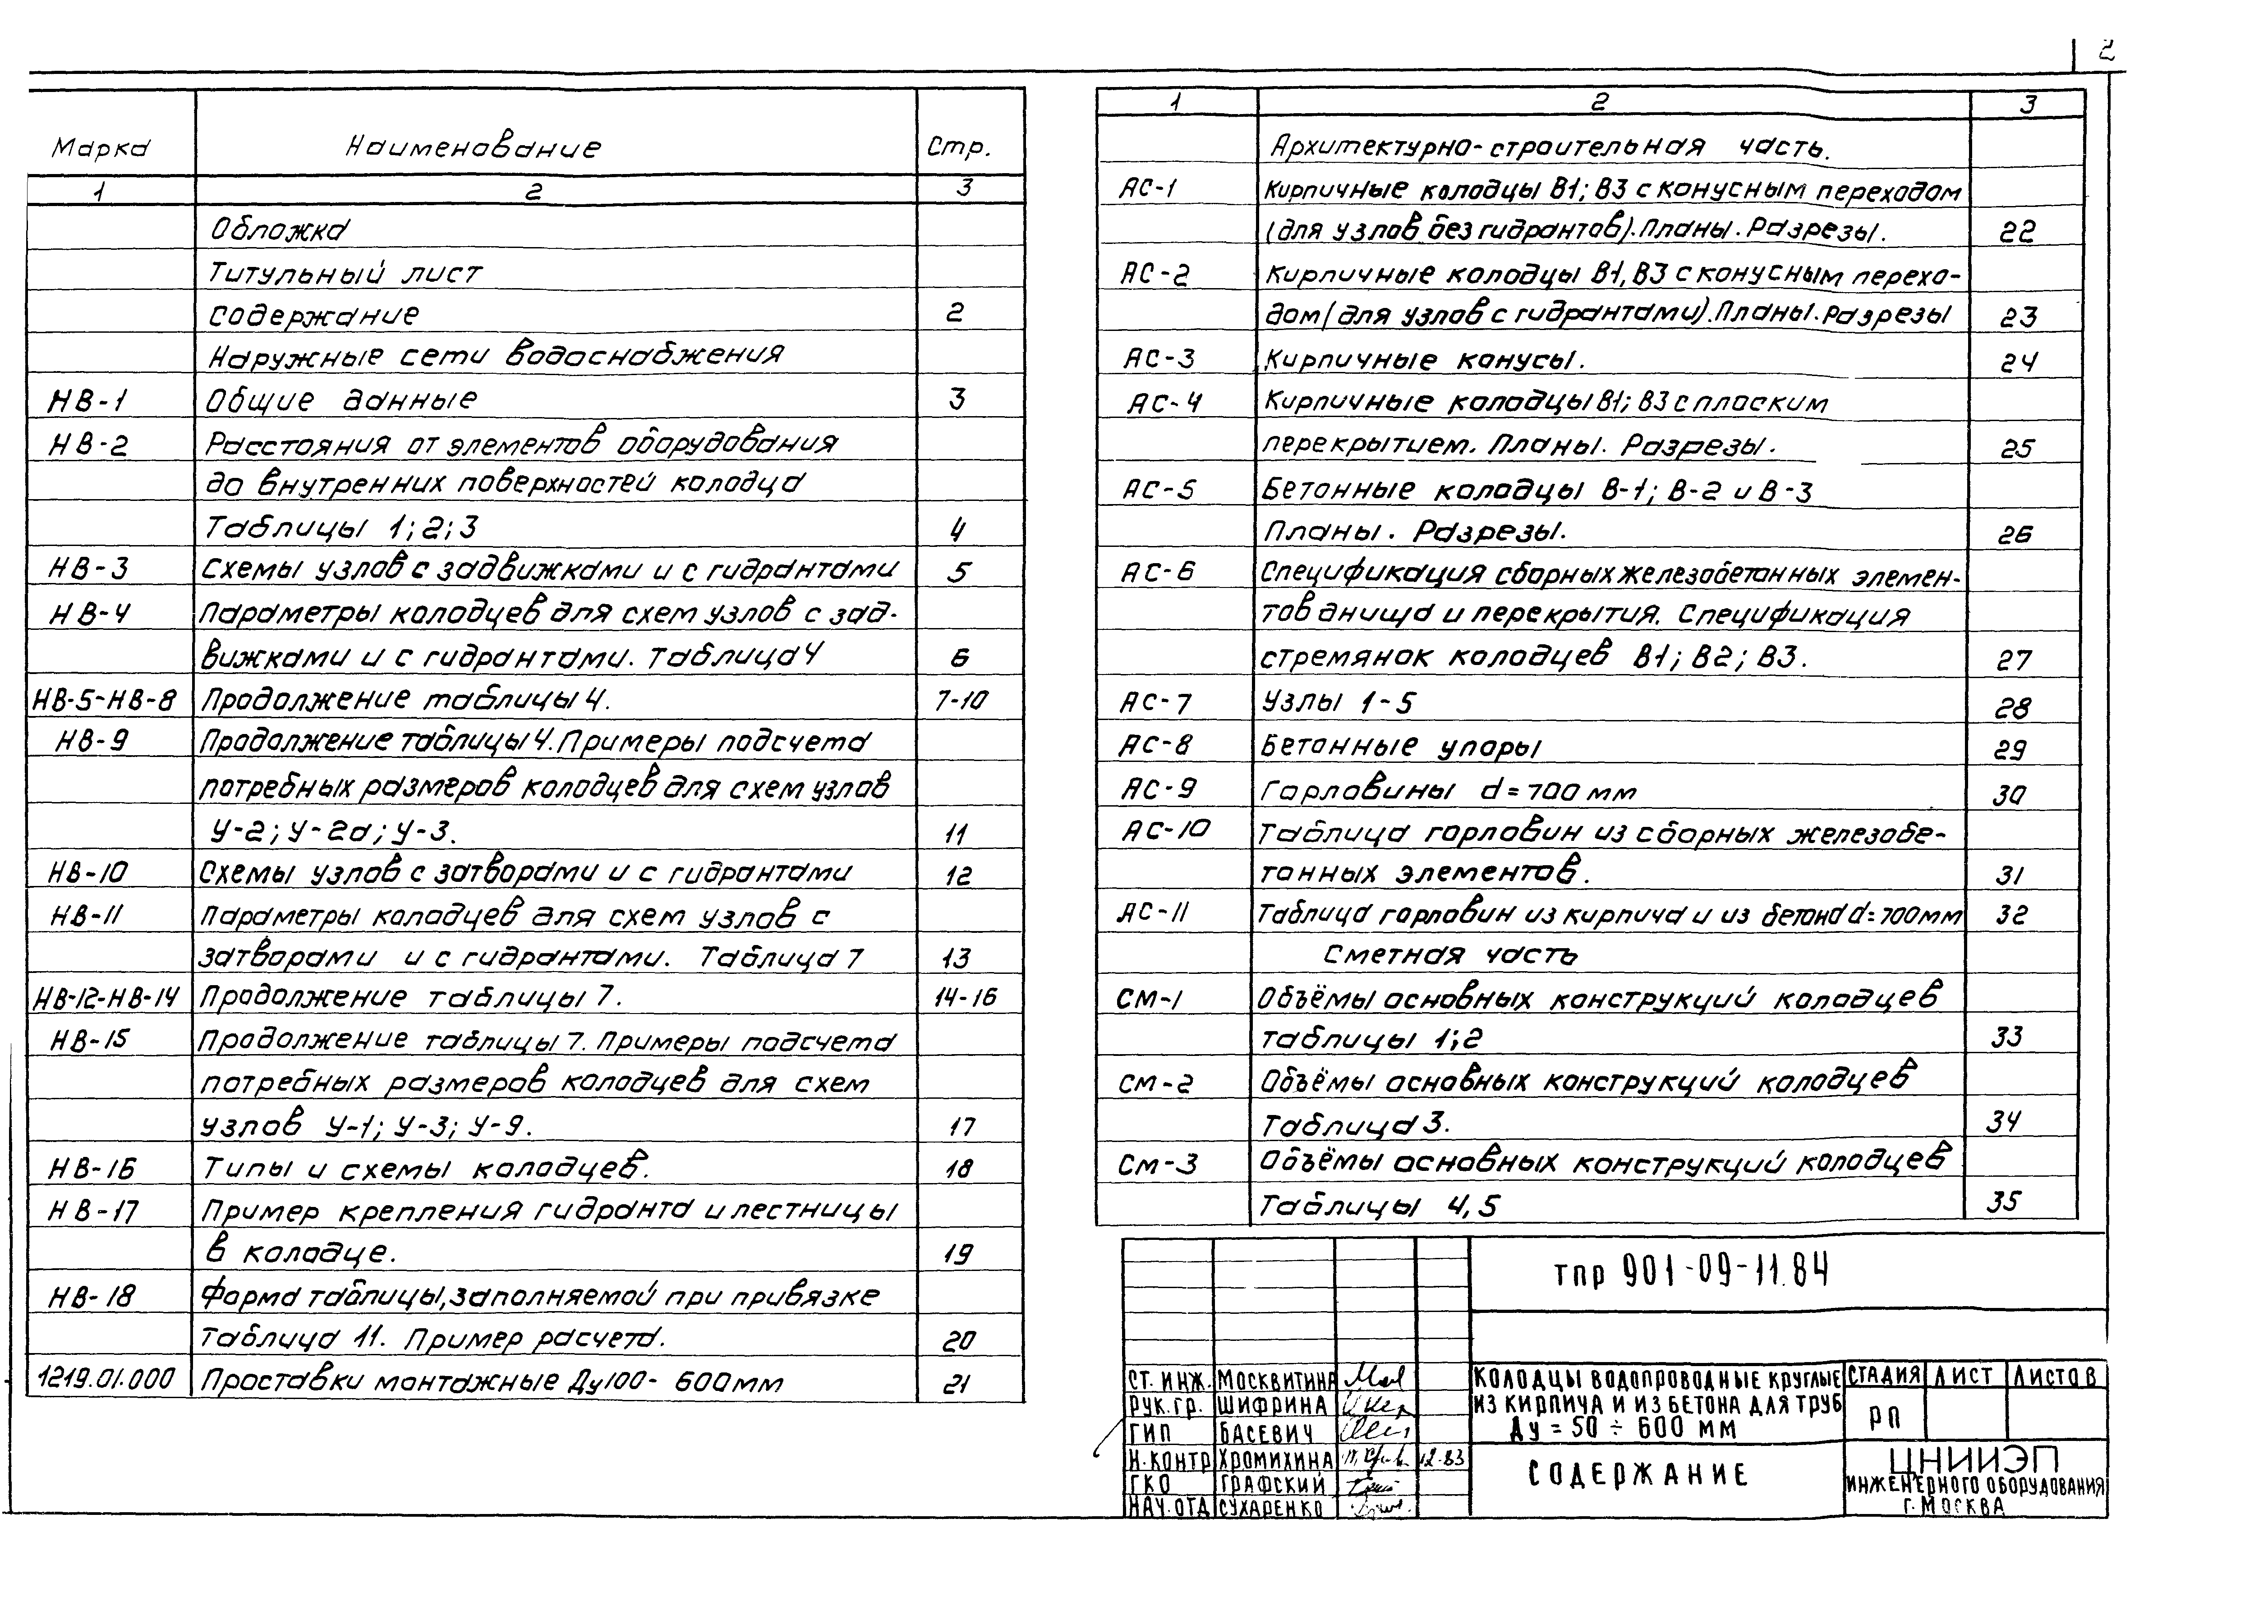 2
Марка Наименование Стр.
1 2 3
Обложка
Титульный лист
содержание 2
Наружные сети водоснабжения
НВ-1 Общие данные 3
НВ-2 Расстояния от элементов оборудования
до внутренних поверхностей колодца
Таблицы 1; 2; 3 4
НВ-3 Схемы узлов с задвижками и с гидрантами 5
НВ-4 Параметры колодцев для схем узлов с зад-
вижками и с гидрантами. Таблица 4 6
НВ-5-НВ-8 Продолжение таблицы 4. 7-10
НВ-9 Продолжение таблицы 4. Примеры подсчета
потребных размеров колодцев для схем узлов
У-2; У-2а; У-3. 11
НВ-10 Схемы узлов с затворами и с гидрантами 12
НВ-11 Параметры колодцев для схем узлов с
затворами и с гидрантами. Таблица 7 13
НВ-12-НВ-14 Продолжение таблицы 7. 14-16
НВ-15 Продолжение таблицы 7. Примеры подсчета
потребных размеров колодцев для схем
узлов У-1; У-3; У-9. 17
НВ-16 Типы и схемы колодцев. 18
НВ-17 Пример крепления гидранта и лестницы
в колодце. 19
НВ-18 Форма таблицы, заполняемой при привязке
Таблица 11. Пример расчета. 20
1219.01.000 Проставки монтажные Ду100- 600мм 21
1 2 3
Архитектурно-строительная часть.
АС-1 Кирпичные колодцы В1; В3 с конусным переходом
(для узлов без гидрантов). Планы. Разрезы. 22
АС-2 Кирпичные колодцы В1, В3 с конусным перехо-
дом (для узлов с гидрантами). Планы. Разрезы 23
АС-3 Кирпичные конусы. 24
АС-4 Кирпичные колодцы В1; В3 с плоским
перекрытием. Планы. Разрезы. 25
АС-5 Бетонные колодцы В-1; В-2 и В-3
Планы. Разрезы. 26
АС-6 Спецификация сборных железобетонных элемен-
тов днища и перекрытия. Спецификация
стремянок колодцев В1; В2; В3. 27
АС-7 Узлы 1-5 28
АС-8 Бетонные упоры 29
АС-9 Горловины d=700мм 30
АС-10 Таблица горловин из сборных железобе-
тонных элементов. 31
АС-11 Таблица горловин из кирпича и из бетона d=700мм 32
Сметная часть
СМ-1 Объёмы основных конструкций колодцев
таблицы 1; 2 33
СМ-2 Объёмы основных конструкций колодцев
Таблица 3. 34
СМ-3 Объёмы основных конструкций колодцев
Таблицы 4, 5 35
ТПР 901-09-11.84
СТ. ИНЖ. МОСКВИТИНА
РУК. ГР. ШИФРИНА
ГИП БАСЕВИЧ
Н.КОНТР ХРОМИХИНА 12.83
ГКО ГРАФСКИЙ
НАЧ.ОТД СУХАРЕНКО
КОЛОДЦЫ ВОДОПРОВОДНЫЕ КРУГЛЫЕ
ИЗ КИРПИЧА И ИЗ БЕТОНА ДЛЯ ТРУБ
Ду = 50 ÷ 600 ММ
СТАДИЯ ЛИСТ ЛИСТОВ
РП
СОДЕРЖАНИЕ
ЦНИИЭП
ИНЖЕНЕРНОГО ОБОРУДОВАНИЯ
Г. МОСКВА